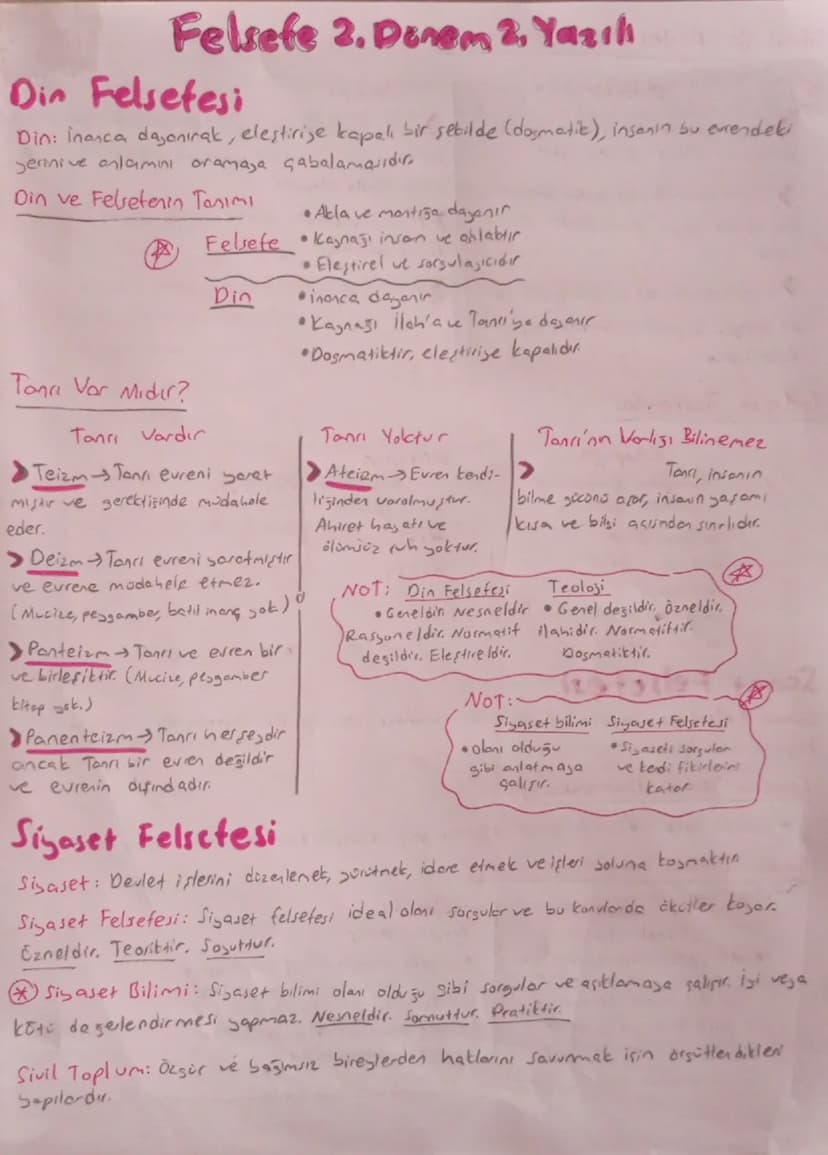 Felsefe 2. Dönem 2. Yazılı
Din Felsefesi
Din: inanca dayanırak, eleştiriye kapalı bir şekilde (dogmatik), insanın bu evrendeki
yerini ve anlamını aramaya çabalamasıdır.
Din ve Felsefenin Tanımı
Felsefe
• Akla ve mantığa dayanır
• Kaynağı insan ve ahlaktır
• Eleştirel ve sorgulayıcıdır
Din
• inanca dayanır
• Kaynağı İlah'a ve Tanrı'ya dayanır
• Dogmatiktir, eleştiriye kapalıdır.
Tanrı Var Mıdır?
Tanrı Vardır
Teizm → Tanrı evreni yarat
mıştır ve gerektiğinde müdahale
eder.
Deizm → Tanrı evreni yaratmıştır
ve evrene müdahele etmez.
(Mucize, peygamber, batıl inanç yok)
Panteizm → Tanrı ve evren bir
ve birleşiktir. (Mucize, peygamber
kitap yok.)
Panenteizm → Tanrı herşeydir
ancak Tanrı bir evren değildir
ve evrenin dışındadır.
Tanrı Yoktur
Ateizm → Evren kendi-
liğinden varolmuştur.
Ahiret hayatı ve
ölümsüz ruh yoktur.
Tanrı'nın Varlığı Bilinemez
Tanrı, insanın
bilme gücünü aşar, insanın yaşamı
kısa ve bilgi açısından sınırlıdır.
NOT: Din Felsefesi Teoloji
• Geneldir. Nesneldir • Genel değildir, özneldir.
Rasyoneldir. Normatif ilahidir. Normatiftir.
değildir. Eleştireldir. Dogmatiktir.
NOT:
Siyaset bilimi Siyaset Felsefesi
• olanı olduğu • Siyaseti sorgular
gibi anlatmaya ve kendi fikirlerini
çalışır. katar
Siyaset Felsefesi
Siyaset: Devlet işlerini düzenlemek, yürütmek, idare etmek ve işleri yoluna koymaktır
Siyaset Felsefesi: Siyaset felsefesi ideal olanı sorgular ve bu konularda ölçütler koyar.
Özneldir. Teoriktir. Soyuttur.
Siyaset Bilimi: Siyaset bilimi olanı olduğu gibi sorgular ve açıklamaya çalışır. İyi veya
kötü değerlendirmesi yapmaz. Nesneldir. Somuttur. Pratiktir.
Sivil Toplum: Özgür ve bağımsız bireylerden haklarını savunmak için örgütlendikleri
yapılardır.